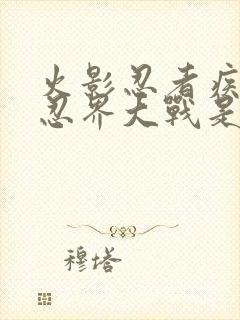 火影忍者疾
忍界大戰是
穆塔